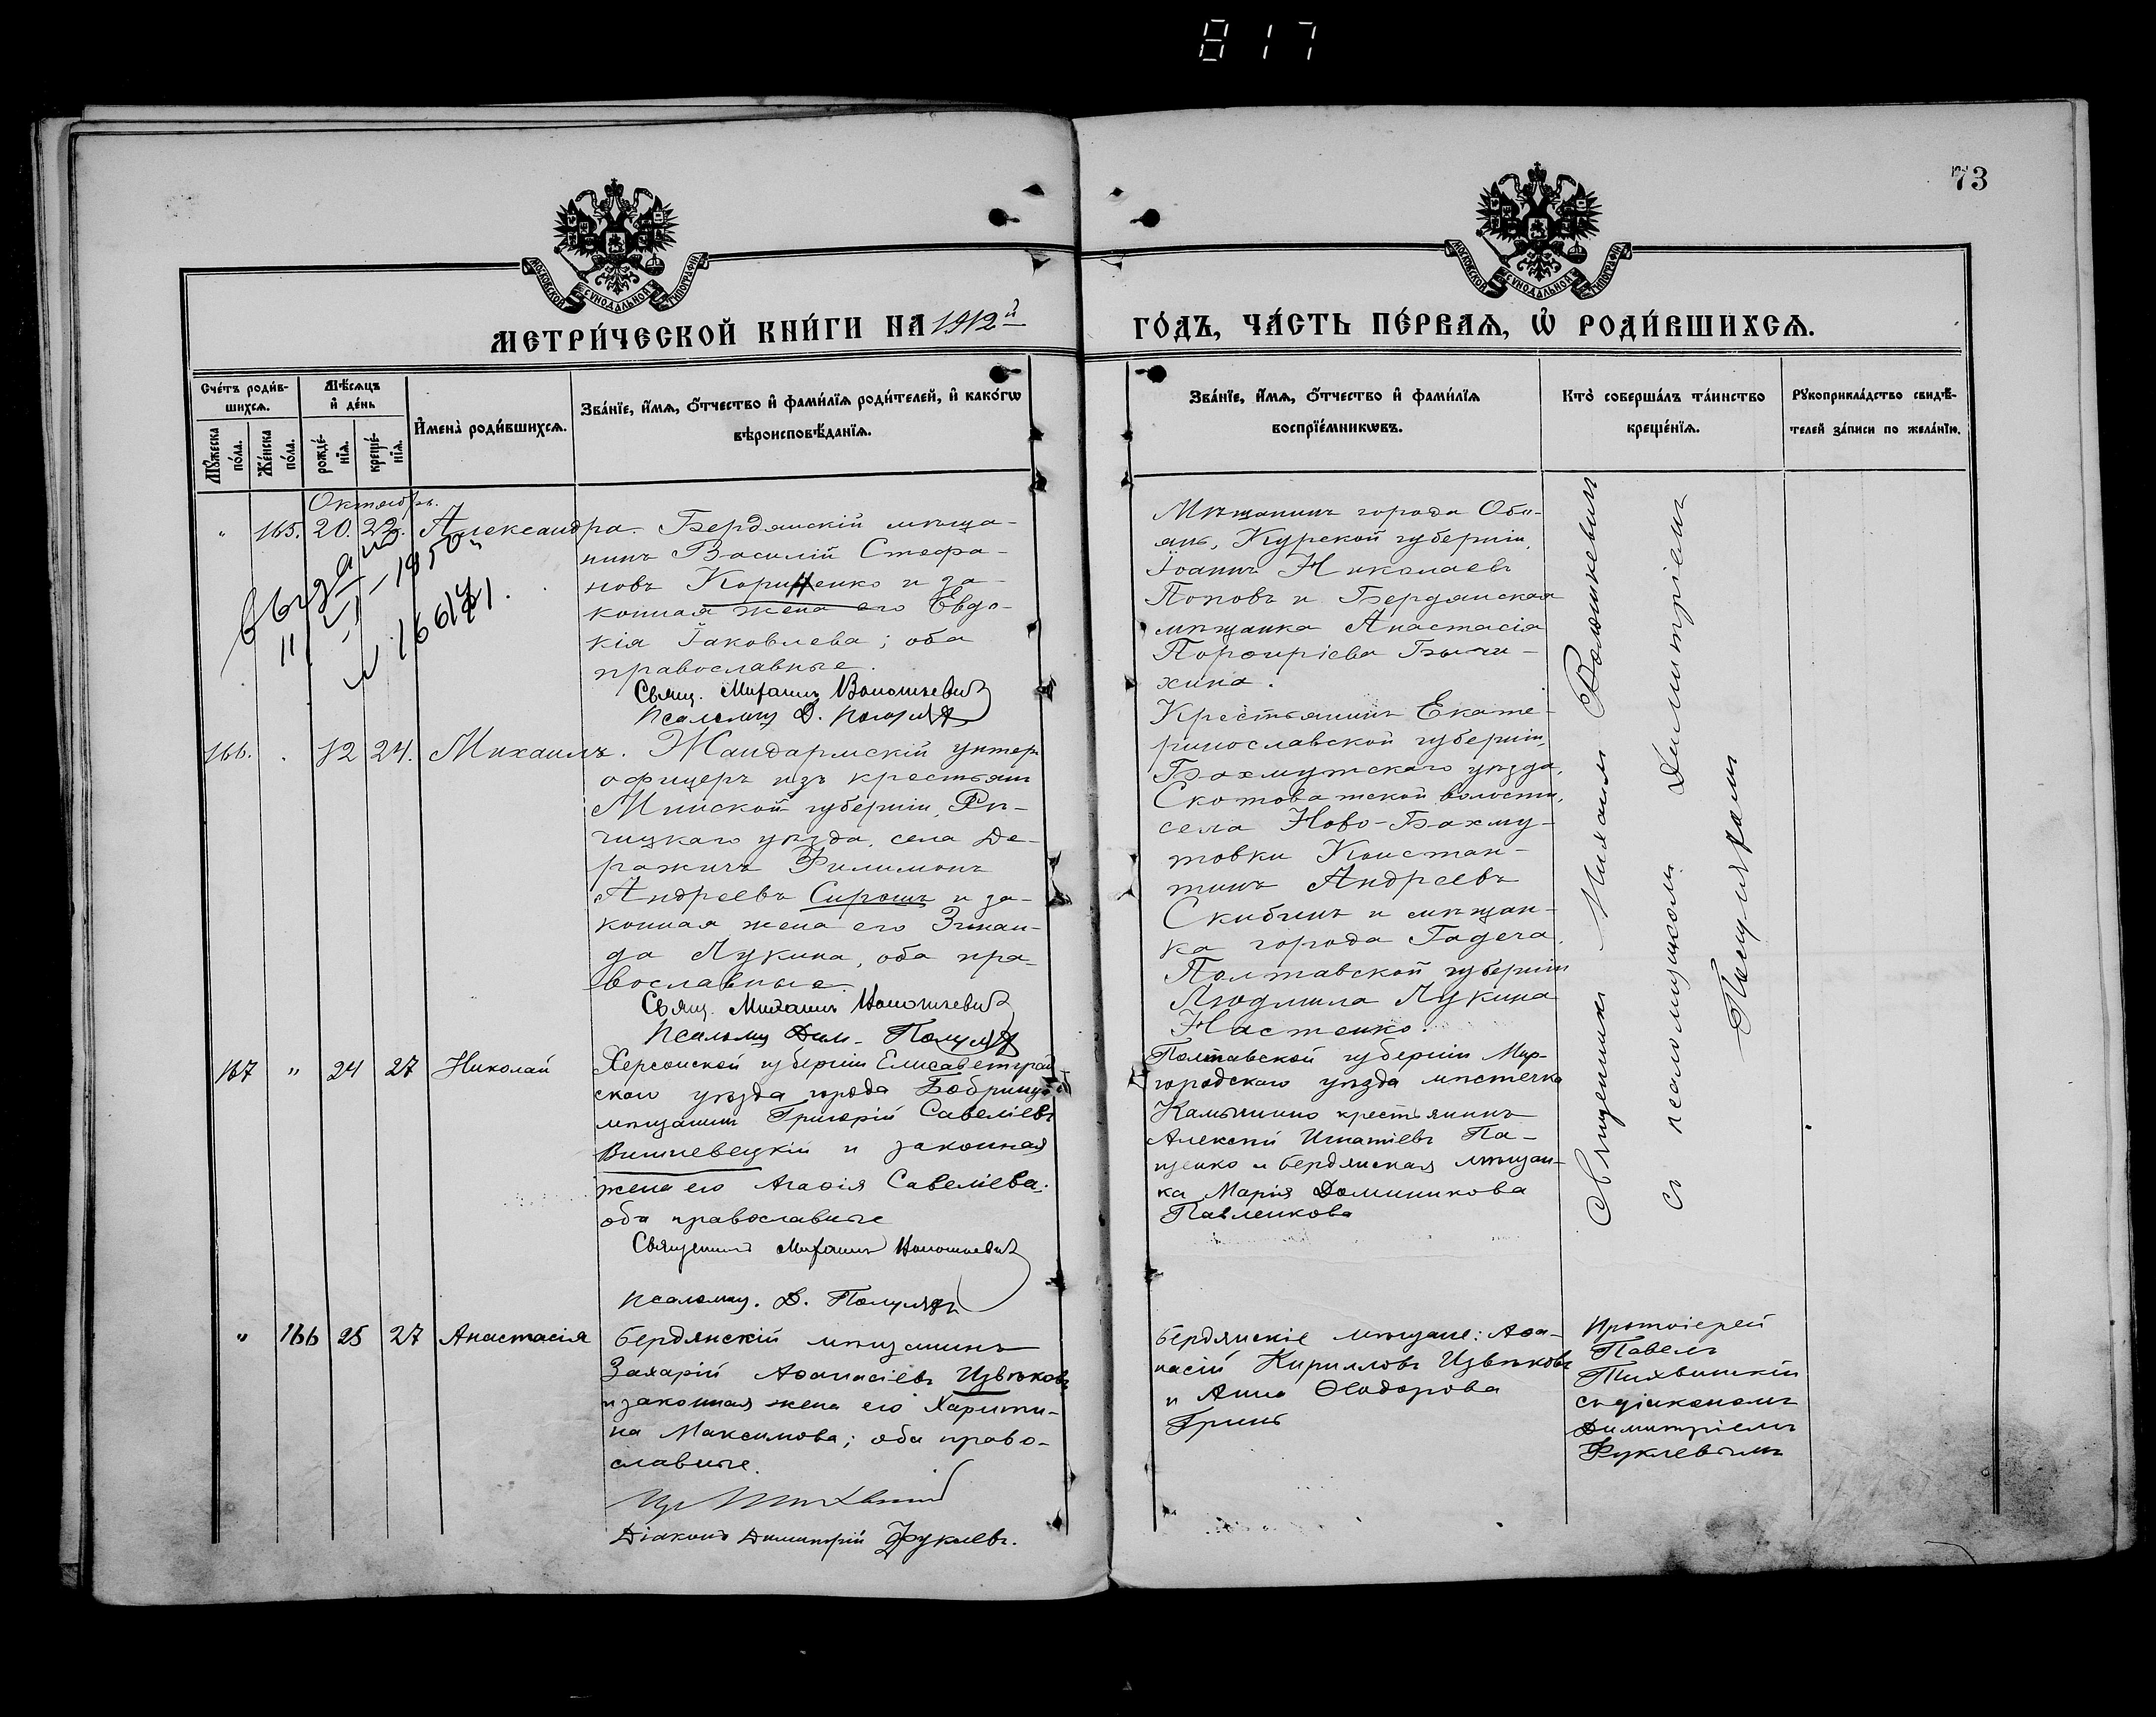 817
73
МОСКОВСКОЙ СУНОДАЛЬНОЙ ТИПОГРАФІИ
МОСКОВСКОЙ СУНОДАЛЬНОЙ ТИПОГРАФІИ
МЕТРИ́ЧЕСКОЙ КНИ́ГИ НА 1912й
ГО́ДЪ, ЧА́СТЬ ПЕ́РВАѦ, Ѡ҆ РОДИ́ВШИХСѦ.
Сче́тъ роди́в-
шихсѧ.
Мꙋ́жеска
по́ла.
Же́нска
по́ла.
Мѣ́сѧцъ
и҆ де́нь
рожде́-
нїѧ.
креще́-
нїѧ.
И҆мена̀ роди́вшихсѧ.
Зва́нїе, и҆́мѧ, ѻ҆́тчество и҆ фами́лїѧ роди́телей, и҆ како́гѡ
вѣроисповѣ́данїѧ.
Зва́нїе, и҆́мѧ, ѻ҆́тчество и҆ фами́лїѧ
воспрїе́мникѡвъ.
Кто̀ соверша́лъ та́инство
креще́нїѧ.
Рꙋкоприкла́дство свидѣ́-
телей за́писи по жела́нїю.
Октябрь.
" 165. 20. 22. Александра. Бердянскій мѣща-
нинъ Василій Стефа-
новъ Кориненко и за-
конная жена его Евдо-
кія Іаковлева; оба
православные.
Свящ. Михаилъ Волошкевичъ
Псаломщ. Д. Полуляхъ
выдано
11/VI-1950
№ 16617
Мѣщанинъ города Обо-
янь, Курской губерніи,
Іоаннъ Николаевъ
Поповъ и Бердянская
мѣщанка Анастасія
Порфиріева Бычи-
хина.
166. . 12 24. Михаилъ. Жандармскій унтеръ
офицеръ изъ крестьянъ
Минской губерніи, Рѣ-
чицкаго уѣзда, села Де-
ражичъ Филимонъ
Андреевъ Сирошъ и за-
конная жена его Зинаи-
да Лукина, оба пра-
вославные.
Свящ. Михаилъ Волошкевичъ
Псаломщ. Дим. Полуляхъ
Крестьянинъ Екате-
ринославской губерніи,
Бахмутскаго уѣзда,
Скотоватской волости,
села Ново-Бахму-
товки Констан-
тинъ Андреевъ
Скибинъ и мѣщан-
ка города Гадяча,
Полтавской губерніи
Людмила Лукина
Настенко.
167 " 24 27 Николай Херсонской губерніи Елисаветград-
скаго уѣзда города Бобринца
мѣщанинъ Григорій Савеліевъ
Вишневецкій и законная
жена его Агафія Савеліева.
оба православные
Священникъ Михаилъ Волошкевичъ
Псаломщ. Д. Полуляхъ
Полтавской губерніи Мир-
городскаго уѣзда мѣстечка
Камышино крестьянинъ
Алексѣй Игнатіевъ Па-
щенко и бердянская мѣщан-
ка Марія Доминикова
Павленкова
Священникъ Михаилъ Волошкевичъ
съ псаломщикомъ Димитріемъ
Полуляхомъ
" 166 25 27 Анастасія бердянскій мѣщанинъ
Захарій Аѳанасіевъ Извѣковъ
и законная жена его Харити-
на Максимова; оба право-
славные.
Діаконъ Димитрій Фуклевъ.
бердянскіе мѣщане: Аѳа-
насій Кирилловъ Извѣковъ
и Анна Ѳеодорова
Гринь
Протоіерей
Павелъ
Тихвинскій
съ діакономъ
Димитріемъ
Фуклевымъ